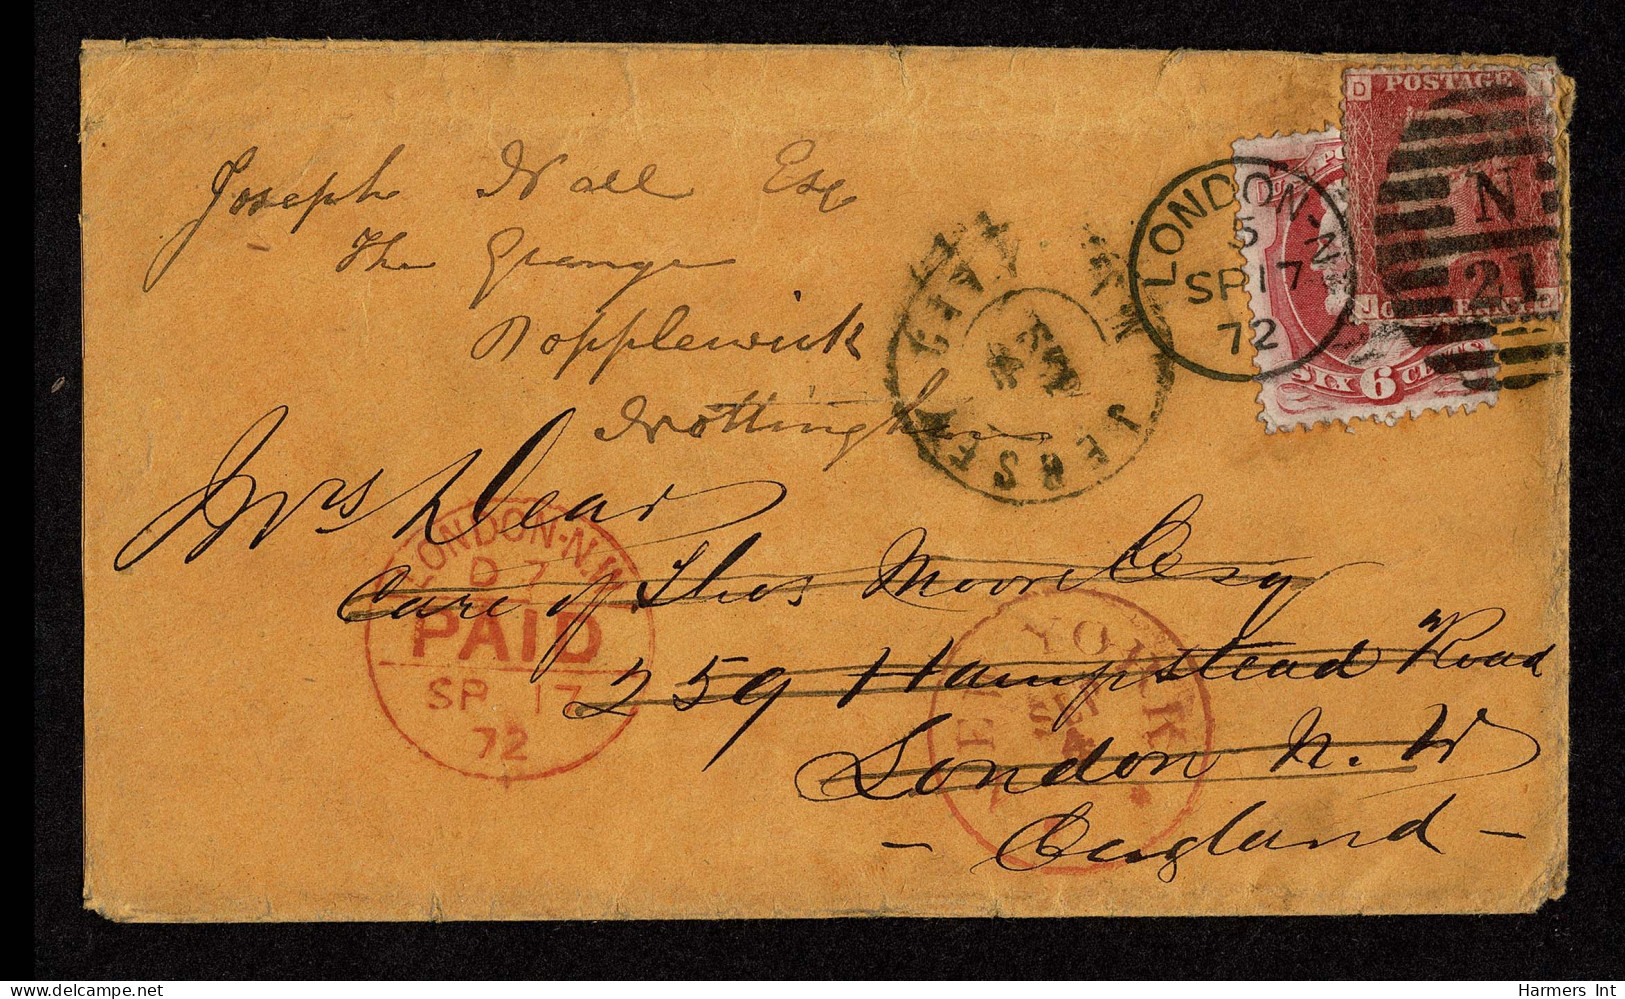 Joseph Wall Esq
The Grange
Papplewick
Nottingham
Mrs Dear
Care of Thos Moore Esq
259 Hampstead Road
London N. W
- England -
JERSEY CITY N.J.
LONDON-N.W
5
SP 17
72
D POSTAGE
N
21
J
U.S. PO
SIX 6 CENTS
LONDON-N.W
D 7
PAID
SP 17
72
NEW YORK
SEP
4
Harmers Int